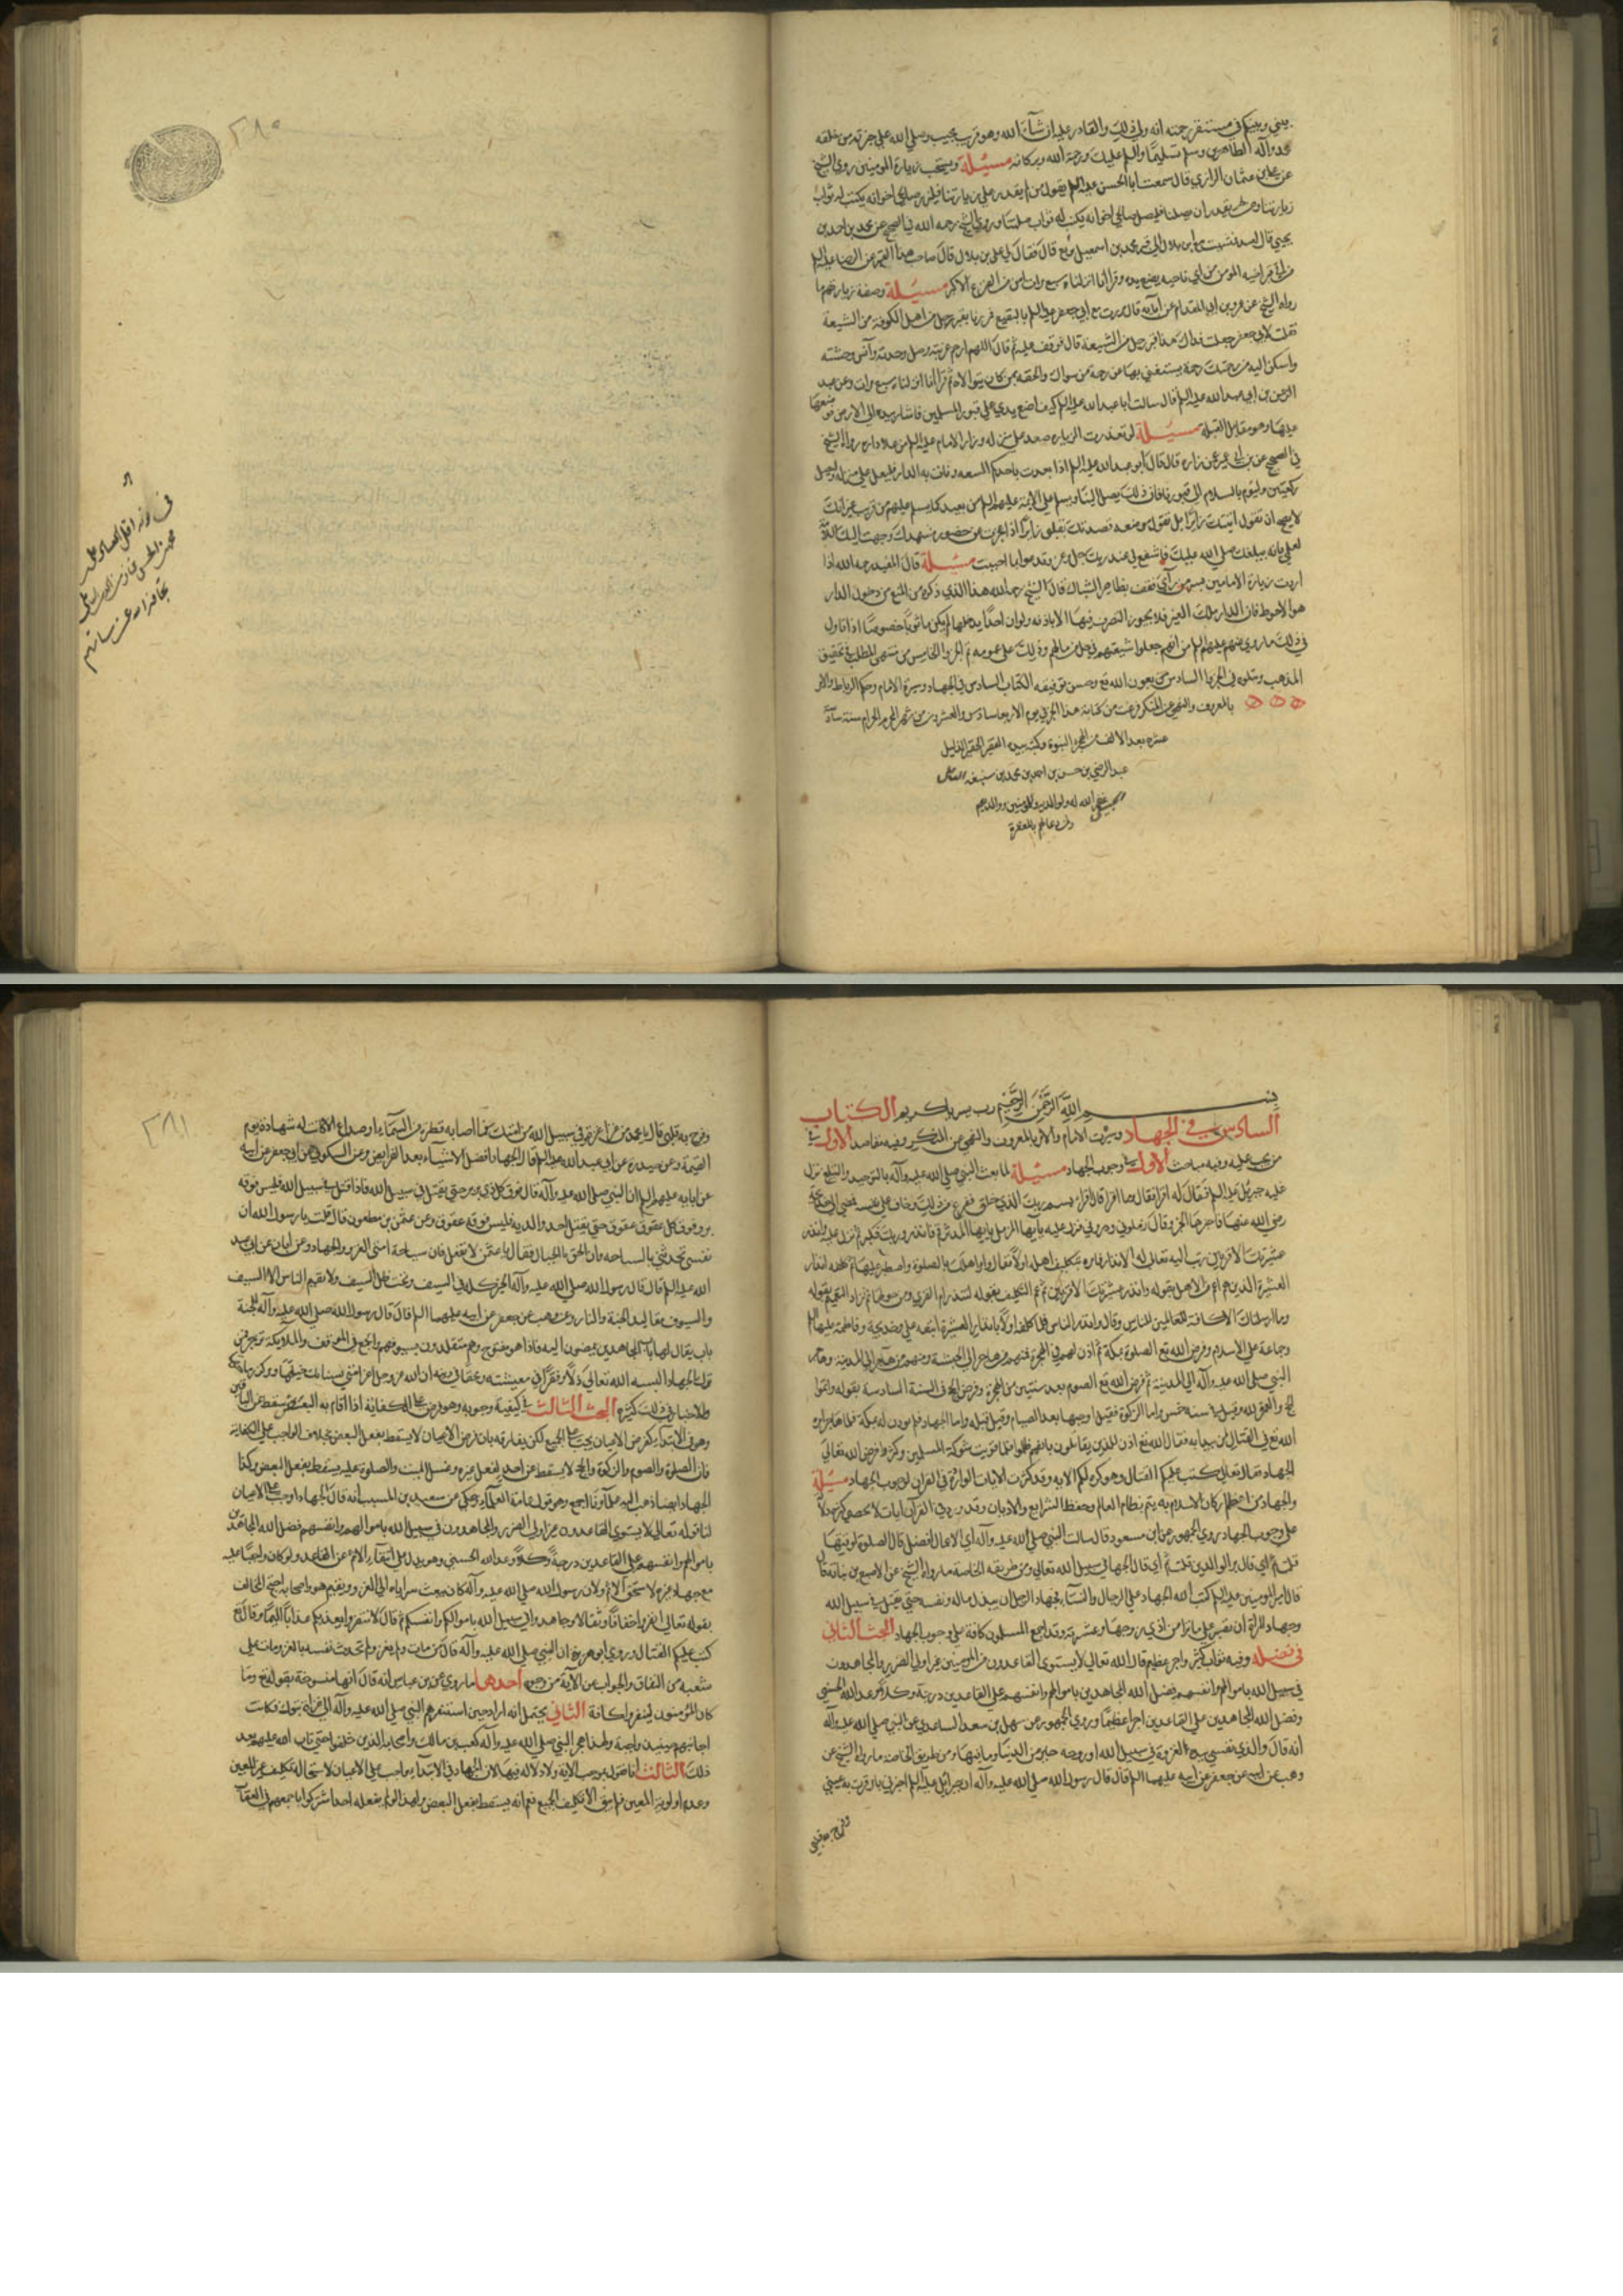 بيني وبينكم في مستقر رحمته انه ولي ذلك والقادر عليه ان شاء الله وهو قريب مجيب وصلى الله على خيرته من خلقه
محمد وآله الطاهرين وسلم تسليما والسلم عليك ورحمة الله وبركاته مسئلة ويستحب زيارة المومنين روى الشيخ
عن علي بن عثمان الرازي قال سمعت ابا الحسن عليه السلم يقول من لم يقدر على زيارتنا فليزر صالحي اخوانه يكتب له ثواب
زيارتنا ومن لم يقدر ان يصلنا فليصل صالحي اخوانه يكتب له ثواب صلتنا وروى الشيخ رحمه الله في الصحيح عن محمد بن احمد بن
يحيى قال مشيت مع ابن بلال الى قبر محمد بن اسمعيل بن بزيع قال فقال لي علي بن بلال قال صاحب هذا القبر عن الرضا عليه السلم
من اتى قبر اخيه المومن من اي ناحية يضع يده وقرأ انا انزلناه سبع مرات امن من الفزع الاكبر مسئلة وصفة زيارتهم ما
رواه الشيخ عن عمرو بن ابي المقدام عن ابيه قال مررت مع ابي جعفر عليه السلم بالبقيع فمررنا بقبر رجل من اهل الكوفة من الشيعة
فقلت لابي جعفر جعلت فداك هذا قبر رجل من الشيعة قال فوقف عليه ثم قال اللهم ارحم غربته وصل وحدته وآنس وحشته
واسكن اليه من رحمتك رحمة يستغني بها عن رحمة من سواك والحقه بمن كان يتولاه ثم قرأ انا انزلناه سبع مرات وعن عبد
الرحمن بن ابي عبد الله قال سالت ابا عبد الله عليه السلم كيف اضع يدي على قبور المسلمين فاشار بيده الى الارض فوضعها
عليها وهو مقابل القبلة مسئلة لو تعذرت الزيارة صعد على منزله وزار الامام عليه السلم من علا داره رواه الشيخ
في الصحيح عن ابن ابي عمير عن رواه قال قال ابو عبد الله عليه السلم اذا بعدت باحدكم الشقة ونات به الدار فليعل على منزله وليصل
ركعتين وليؤم بالسلام الى قبورنا فان ذلك يصل الينا ويسلم على الائمة عليهم السلم من بعيد كما يسلم عليهم من قريب غير انك
لا يصح ان تقول اتيتك زائرا بل تقول موضعه قصدتك بقلبي زائرا اذ عجزت عن حضور مشهدك وجهت اليك سلامي
لعلمي بانه يبلغك صلى الله عليك فاشفع لي عند ربك جل وعز وتدعو بما احببت مسئلة قال المفيد رحمه الله اذا
اردت زيارة الامامين بسر من رأى فقف بظاهر الشباك قال الشيخ رحمه الله هذا الذي ذكره من المنع من دخول الدار
هو الاحوط فان الدار ملك الغير فلا يجوز التصرف فيها الا باذنه ولو ان احدا يدخلها لم يكن ماثوما خصوصا اذا تاول
في ذلك ما روي عنهم عليهم السلم من انهم جعلوا شيعتهم في حل من مالهم وذلك على عمومه تم الجزء الخامس من منتهى المطلب في تحقيق
المذهب ويتلوه في الجزء السادس بعون الله تع وحسن توفيقه الكتاب السادس في الجهاد وسيرة الامام وحكم الرباط والامر
بالمعروف والنهي عن المنكر فرغت من كتابة هذا الجزء يوم الاربعا سادس والعشرين من شهر المحرم الحرام سنة
عشرة بعد الالف من الهجرة النبوية وكتبه بيده الفقير الحقير الذليل
عبد الرضي بن حسن بن احمد بن محمد بن
غفر الله له ولوالديه وللمومنين ووالديهم
ولمن دعا لهم بالمغفرة
٢٨٠
بسم الله الرحمن الرحيم رب يسر يا كريم الكتاب
السادس في الجهاد وسيرة الامام والامر بالمعروف والنهي عن المنكر وفيه مقاصد الاول في
من يجب عليه وفيه مباحث الاول في وجوب الجهاد مسئلة لما بعث النبي صلى الله عليه وآله بالتوحيد والتبليغ نزل
عليه جبرئيل عليه السلم فقال له اقرأ فقال وما اقرأ قال اقرأ باسم ربك الذي خلق ففزع من ذلك وخاف على نفسه فمضى الى خديجة
رضي الله عنها فاخبرها الخبر وقال زملوني ودثروني فنزل عليه يا ايها المزمل يا ايها المدثر قم فانذر وربك فكبر ثم نزل عليه وانذر
عشيرتك الاقربين
العشيرة الذين هم اعم من الاهل بقوله وانذر عشيرتك الاقربين ثم عمم التكليف بقوله لتنذر ام القرى ومن حولها ثم زاد التعميم بقوله
وما ارسلناك الا كافة للناس
وجماعة على الاسلام وفرض الله تع الصلوة بمكة ثم اذن لهم في الهجرة فمنهم من هاجر الى الحبشة ومنهم من هاجر الى المدينة وهاجر
النبي صلى الله عليه وآله الى المدينة ثم فرض الله تع الصوم بعد سنتين من الهجرة وفرض الحج في السنة السادسة بقوله واتموا
الحج والعمرة لله وقيل في سنة خمس واما الزكوة فقيل اوجبها بعد الصيام وقيل قبله واما الجهاد فلم يوذن له بمكة فلما هاجر امره
الله تع في القتال لمن يبدأ به فقال الله تع اذن للذين يقاتلون بانهم ظلموا فلما قويت شوكة المسلمين وكثروا فرض الله تعالى
الجهاد فقال تعالى كتب عليكم القتال وهو كره لكم الاية وقد كثرت الايات الواردة في القران لوجوب الجهاد مسئلة
والجهاد من اعظم اركان الاسلام به يتم نظام العالم وحفظ الشرايع والاديان وقد ورد في القرآن ايات لا تحصى كثرة دالة
على وجوب الجهاد روى الجمهور عن ابن مسعود قال سالت النبي صلى الله عليه وآله اي الاعمال افضل قال الصلوة لوقتها
قلت ثم اي قال بر الوالدين قلت ثم اي قال الجهاد في سبيل الله تعالى ومن طريق الخاصة ما رواه الشيخ عن الاصبغ بن نباتة قال
قال امير المومنين عليه السلم كتب الله الجهاد على الرجال والنساء فجهاد الرجل ان يبذل ماله ونفسه حتى يقتل في سبيل الله
وجهاد المرأة ان تصبر على ما ترا من اذى زوجها وعشيرته وقد اجمع المسلمون كافة على وجوب الجهاد البحث الثاني
في فضله وفيه ثواب كثير واجر عظيم قال الله تعالى لا يستوي القاعدون من المومنين غير اولي الضرر والمجاهدون
في سبيل الله باموالهم وانفسهم فضل الله المجاهدين باموالهم وانفسهم على القاعدين درجة وكلا وعد الله الحسنى
وفضل الله المجاهدين على القاعدين اجرا عظيما وروى الجمهور عن سهل بن سعد الساعدي عن النبي صلى الله عليه وآله
انه قال والذي نفسي بيده لغزوة في سبيل الله او روحة خير من الدنيا وما فيها ومن طريق الخاصة ما رواه الشيخ عن
وهب عن جعفر عن ابيه عليهما السلم قال قال رسول الله صلى الله عليه وآله ان جبرائيل عليه السلم اخبرني بامر قرت به عيني
وفرح به قلبي
٢٨١
وفرح به قلبي قال يا محمد من غزا غزوة في سبيل الله من امتك فما اصابه قطرة من السماء او صداع الا كانت له شهادة يوم
القيمة وعن حيدرة عن ابي عبد الله عليه السلم قال الجهاد افضل الاشياء بعد الفرايض وعن السكوني عن جعفر عن ابيه
عن ابايه عليهم السلم ان النبي صلى الله عليه وآله قال فوق كل ذي بر بر حتى يقتل في سبيل الله فاذا قتل في سبيل الله فليس فوقه
بر وفوق كل عقوق عقوق حتى يقتل احد والديه فليس فوقه عقوق وعن عثمن بن مظعون قال قلت يا رسول الله ان
نفسي تحدثني بالسياحة وان الحق بالجبال فقال يا عثمن لا تفعل فان سياحة امتي الغزو والجهاد وعن ابان عن ابي عبد
الله عليه السلم قال قال رسول الله صلى الله عليه وآله الخير كله في السيف وتحت ظل السيف ولا يقيم الناس الا السيف
والسيوف مقاليد الجنة والنار وعن وهب عن جعفر عن ابيه عليهما السلم قال قال رسول الله صلى الله عليه وآله للجنة
باب يقال لها باب المجاهدين يمضون اليه فاذا هو مفتوح وهم متقلدون بسيوفهم والجمع في الموقف والملائكة ترحب فمن
ترك الجهاد البسه الله تعالى ذلا وفقرا في معيشته ومحقا في دينه ان الله عز وجل اعز امتي بسنابك خيلها ومراكز رماحها
والاخبار في ذلك كثيرة البحث الثالث في كيفية وجوبه وهو فرض على الكفاية اذا قام به البعض سقط عن الباقين
وهو في الابتداء كفرض الاعيان يجب على الجميع لكن يفارقه بان فرض الاعيان لا يسقط بفعل البعض بخلاف الواجب على الكفاية
فان الصلوة والصوم والزكوة والحج لا يسقط عن احد لفعل غيره وغسل الميت والصلوة عليه يسقط بفعل البعض وكذا
الجهاد ايضا ذهب اليه علماونا اجمع وهو قول عامة العلماء وحكي عن سعيد بن المسيب انه قال الجهاد واجب على الاعيان
لنا قوله تعالى لا يستوي القاعدون غير اولي الضرر والمجاهدون في سبيل الله باموالهم وانفسهم فضل الله المجاهدين
باموالهم وانفسهم على القاعدين درجة وكلا وعد الله الحسنى وهو يدل على انتفاء الاثم عن القاعد ولو كان واجبا عليه
مع جهاد غيره لاستحق الاثم ولان رسول الله صلى الله عليه وآله كان يبعث سراياه الى الغزو ويقيم هو واصحابه احتج المخالف
بقوله تعالى انفروا خفافا وثقالا وجاهدوا في سبيل الله باموالكم وانفسكم ثم قال الا تنفروا يعذبكم عذابا اليما وقال تع
كتب عليكم القتال وروى ابو هريرة ان النبي صلى الله عليه وآله قال من مات ولم يغز ولم تحدث نفسه بالغزو مات على
شعبة من النفاق والجواب عن الآية من وجوه احدها ما روي عن ابن عباس انه قال انها منسوخة بقوله تع وما
كان المؤمنون لينفروا كافة الثاني يحتمل انه اراد حين استنفرهم النبي صلى الله عليه وآله الى غزاة تبوك وكانت
اجابتهم حينئذ واجبة ولهذا هجر النبي صلى الله عليه وآله كعب بن مالك واصحابه الذين خلفوا حتى تاب الله عليهم بعد
ذلك الثالث انا نقول بموجب الاية ولا دلالة فيها لان الجهاد في الابتداء واجب على الاعيان لاستحالة تكليف غير المعين
وعدم اولوية المعين فلم يبق الا تكليف الجميع نعم انه يسقط بفعل البعض ولهذا لو لم يفعله احد اشتركوا باجمعهم في العقاب